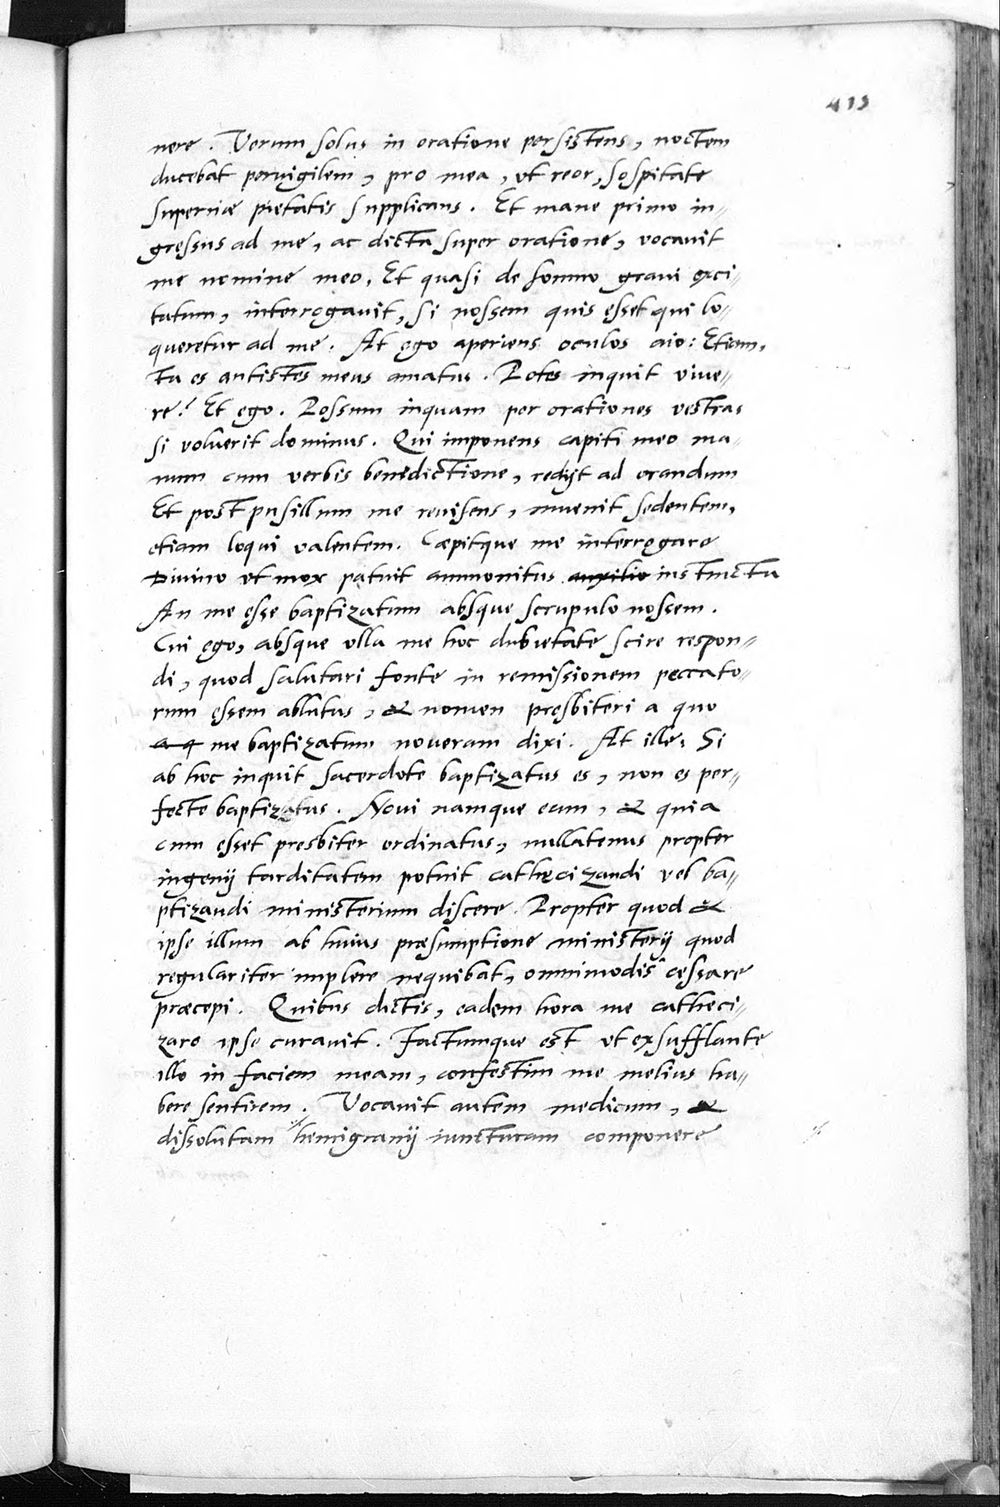 413
nere. Verum solus in oratione persistens, noctem
ducebat pervigilem, pro mea, ut reor, sospitate
supernæ pietatis supplicans. Et mane primo in=
gressus ad me, ac dicta super oratione, vocavit
me nomine meo. Et quasi de somno gravi exci=
tatum, interrogauit, si nossem quis esset qui lo=
queretur ad me. At ego aperiens oculos aio: Etiam,
tu es antistes meus amatus. Potes inquit vive=
re? Et ego. Possum inquam per orationes vestras
si voluerit dominus. Qui imponens capiti meo ma=
num cum verbis benedictione, redijt ad orandum
Et post pusillum me reuisens, inuenit sedentem,
etiam loqui valentem. Cæpitque me interrogare
Divino ut mox patuit ammonitus auxilio instinctu
An me esse baptizatum absque scrupulo nossem.
Cui ego, absque ulla me hoc dubietate scire respon=
di, quod salutari fonte in remissionem peccato=
rum essem ablutus, & nomen presbiteri a quo
a q me baptizatum noveram dixi. At ille, Si
ab hoc inquit sacerdote baptizatus es, non es per=
fecte baptizatus. Novi namque eum, & quia
cum esset presbiter ordinatus, nullatenus propter
ingenij tarditatem potuit cathecizandi vel ba=
ptizandi ministerium discere. Propter quod &
ipse illum ab huius præsumptione ministerij quod
regulariter implere nequibat, omnimodis cessare
præcepi. Quibus dictis, eadem hora me catheci=
zare ipse curavit. Factumque est ut exsufflante
illo in faciem meam, confestim me melius ha=
bere sentirem. Vocavit autem medicum, &
dissolutam hemigranij iuncturam componere